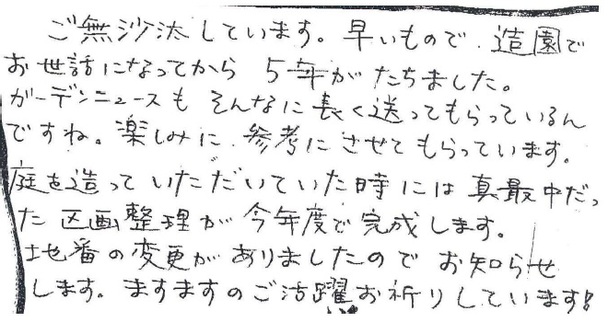 ご無沙汰しています。早いもので、造園で
お世話になってから 5年がたちました。
ガーデンニュースも そんなに長く送ってもらっているん
ですね。楽しみに、参考にさせてもらっています。
庭を造っていただいていた時には真最中だっ
た 区画整理が 今年度で完成します。
地番の変更がありましたので お知らせ
します。ますますのご活躍お祈りしています!